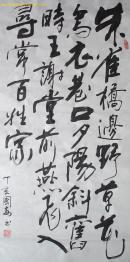 朱雀橋邊野草花
烏衣巷口夕陽斜舊
時王謝堂前燕飛入
尋常百姓家
丁亥